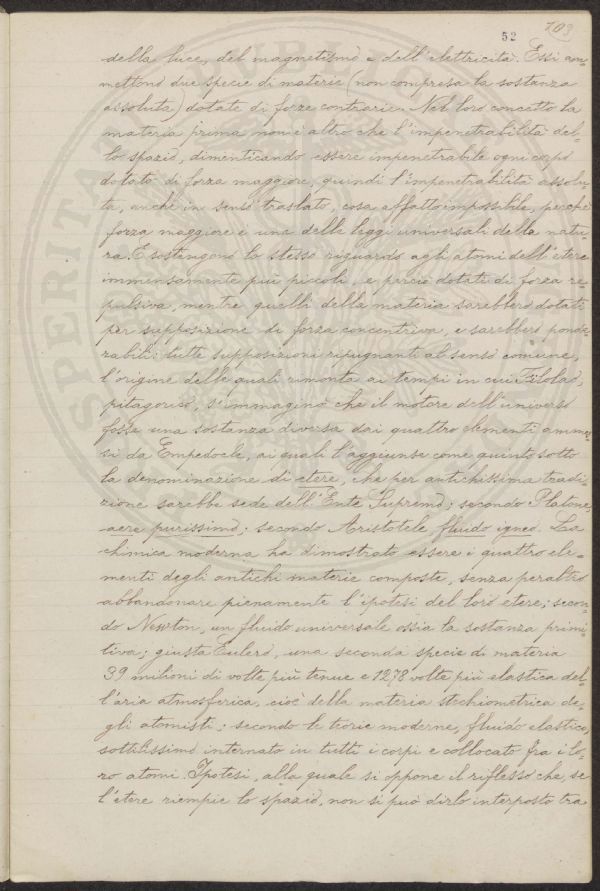 103
52
della luce, del magnetismo e dell'elettricità. Essi am=
mettono due specie di materie (non compresa la sostanza
assoluta) dotate di forze contrarie. Nel loro concetto la
materia prima non è altro che l'impenetrabilità del=
lo spazio, dimenticando essere impenetrabile ogni corpo
dotato di forza maggiore, quindi l'impenetrabilità assolu=
ta, anche in senso traslato, cosa affatto impossibile, perchè
forza maggiore è una delle leggi universali della natu=
ra. E sostengono lo stesso riguardo agli atomi dell'etere
immensamente più piccoli, e perciò dotati di forza re=
pulsiva, mentre quelli della materia sarebbero dotati
per supposizione di forza concentriva, e sarebbero ponde=
rabili: tutte supposizioni ripugnanti al senso comune,
l'origine delle quali rimonta ai tempi in cui Filolao,
pitagorico, s'immaginò che il motore dell'universo
fosse una sostanza diversa dai quattro elementi ammes=
si da Empedocle, ai quali l'aggiunse come quinto sotto
la denominazione di etere, che per antichissima tradi=
zione sarebbe sede dell'Ente Supremo; secondo Platone,
aere purissimo; secondo Aristotele fluido igneo. La
chimica moderna ha dimostrato essere i quattro ele=
menti degli antichi materie composte, senza peraltro
abbandonare pienamente l'ipotesi del loro etere; secon=
do Newton, un fluido universale ossia la sostanza primi=
tiva; giusta Eulero, una seconda specie di materia
39 milioni di volte più tenue e 1278 volte più elastica del=
l'aria atmosferica, cioè della materia stechiometrica de=
gli atomisti; secondo le teorie moderne, fluido elastico,
sottilissimo internato in tutti i corpi e collocato fra i lo=
ro atomi. Ipotesi, alla quale si oppone il riflesso che, se
l'etere riempie lo spazio, non si può dirlo interposto tra